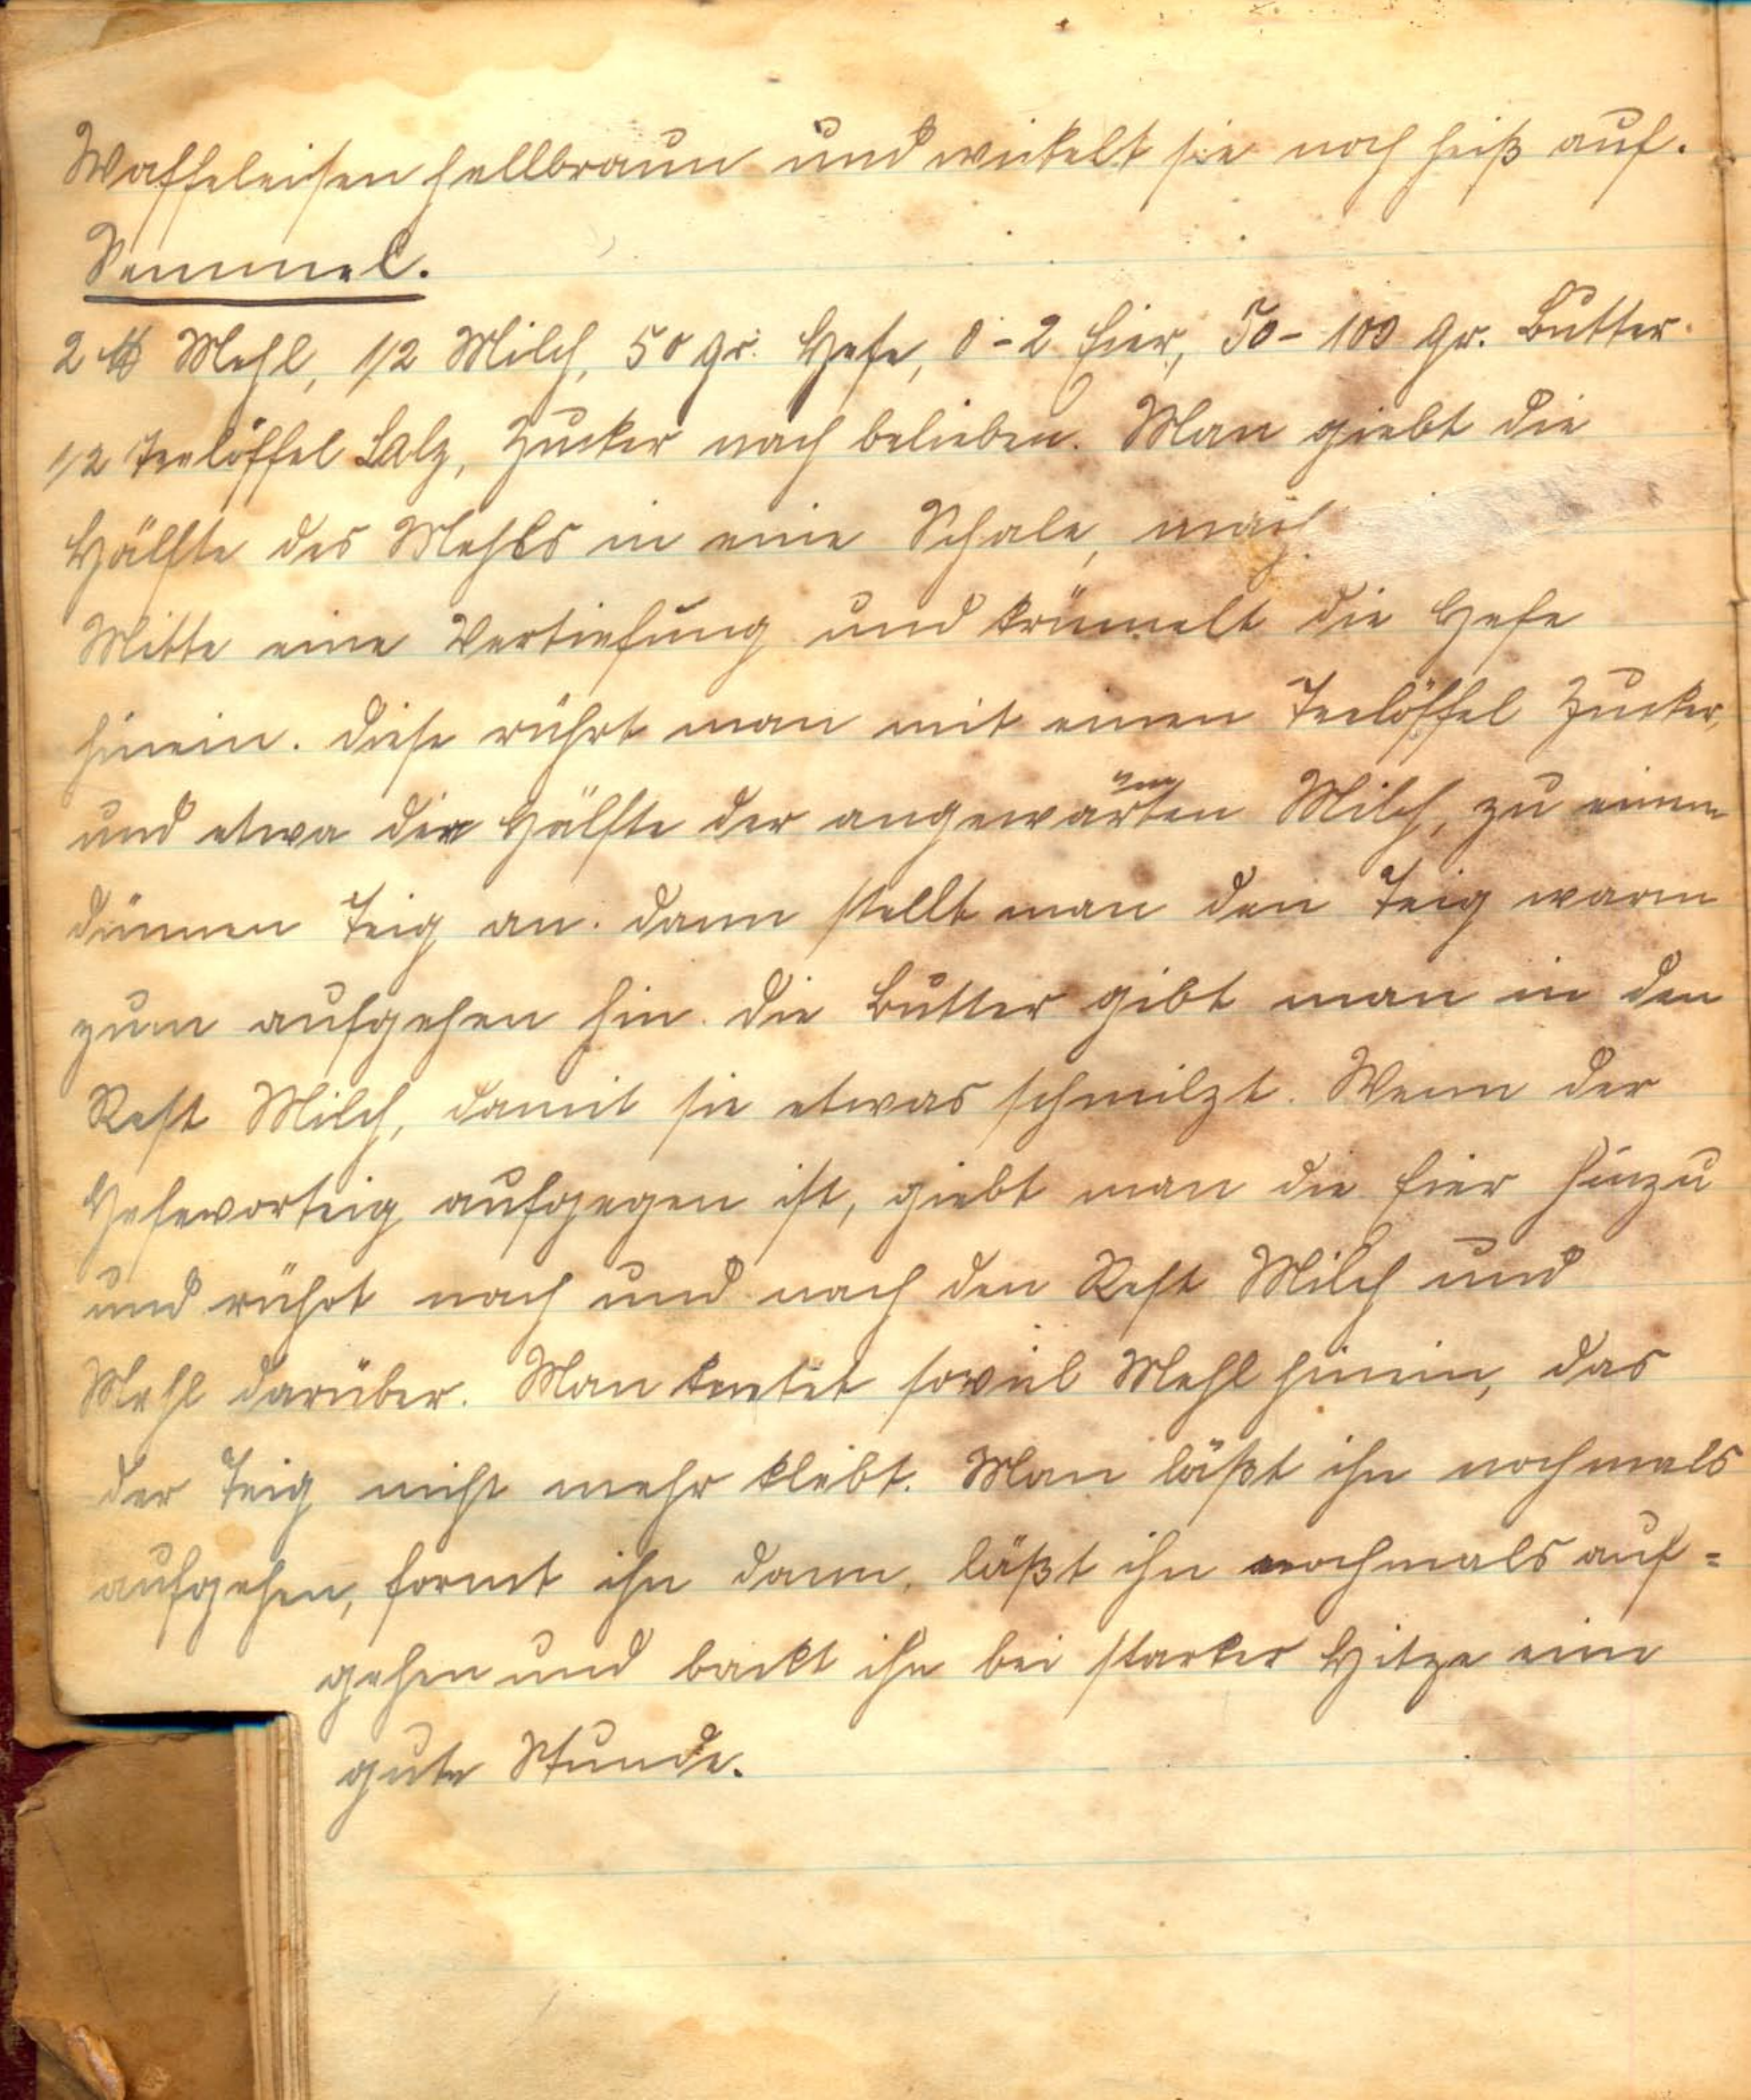 Waffeleisen hellbraun und wickelt sie noch heiß auf.
Semmel.
2 ℔ Mehl, 1/2 Milch, 50 gr. Hefe, 0-2 Eier, 50-100 gr. Butter.
1/2 Teelöffel Salz, Zucker nach belieben. Man giebt die
Hälfte des Mehls in eine Schale, mach
Mitte eine Vertiefung und krümelt die Hefe
hinein. Diese rührt man mit einen Teelöffel Zucker,
und etwa der Hälfte der angewärmten Milch, zu einem
dünnen Teig an. Dann stellt man den Teig warm
zum aufgehen hin. Die Butter gibt man in den
Rest Milch, damit sie etwas schmilzt. Wenn der
Hefevorteig aufgegen ist, giebt man die Eier hinzu
und rührt nach und nach den Rest Milch und
Mehl darüber. Man knetet soviel Mehl hinein, das
der Teig nicht mehr klebt. Man läßt ihn nochmals
aufgehen, formt ihn dann, läßt ihn nochmals auf=
gehen und backt ihn bei starker Hitze eine
gute Stunde.